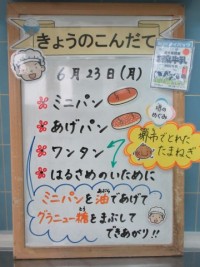 きょうのこんだて
6月23日(月)
ミニパン
あげパン
ワンタン
はるさめのいために
堺のめぐみ
堺市でとれた
たまねぎ
ミニパンを油であげて
グラニュー糖をまぶして
できあがり!!